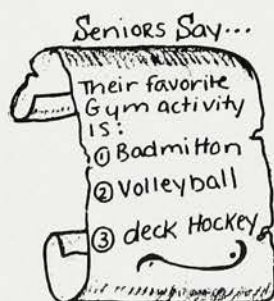 Seniors Say...
Their favorite
Gym activity
is:
① Badmitton
② Volleyball
③ deck Hockey